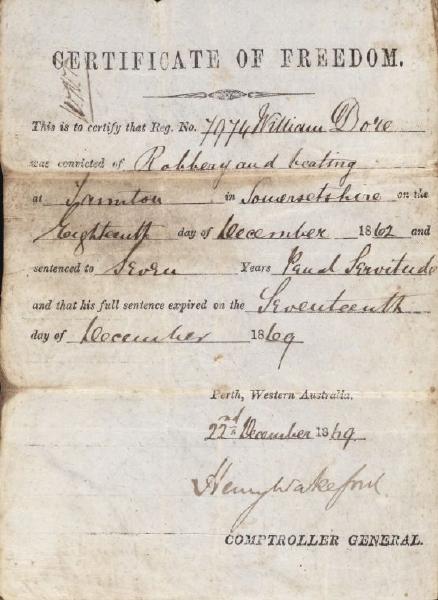 CERTIFICATE OF FREEDOM.
This is to certify that Reg. No. 7974 William Dore
was convicted of Robbery and beating
at Taunton in Somersetshire on the
Eighteenth day of December 1862 and
sentenced to Seven Years Penal Servitude
and that his full sentence expired on the Seventeenth
day of December 1869
Perth, Western Australia.
22nd December 1869
Henry Wakeford
COMPTROLLER GENERAL.